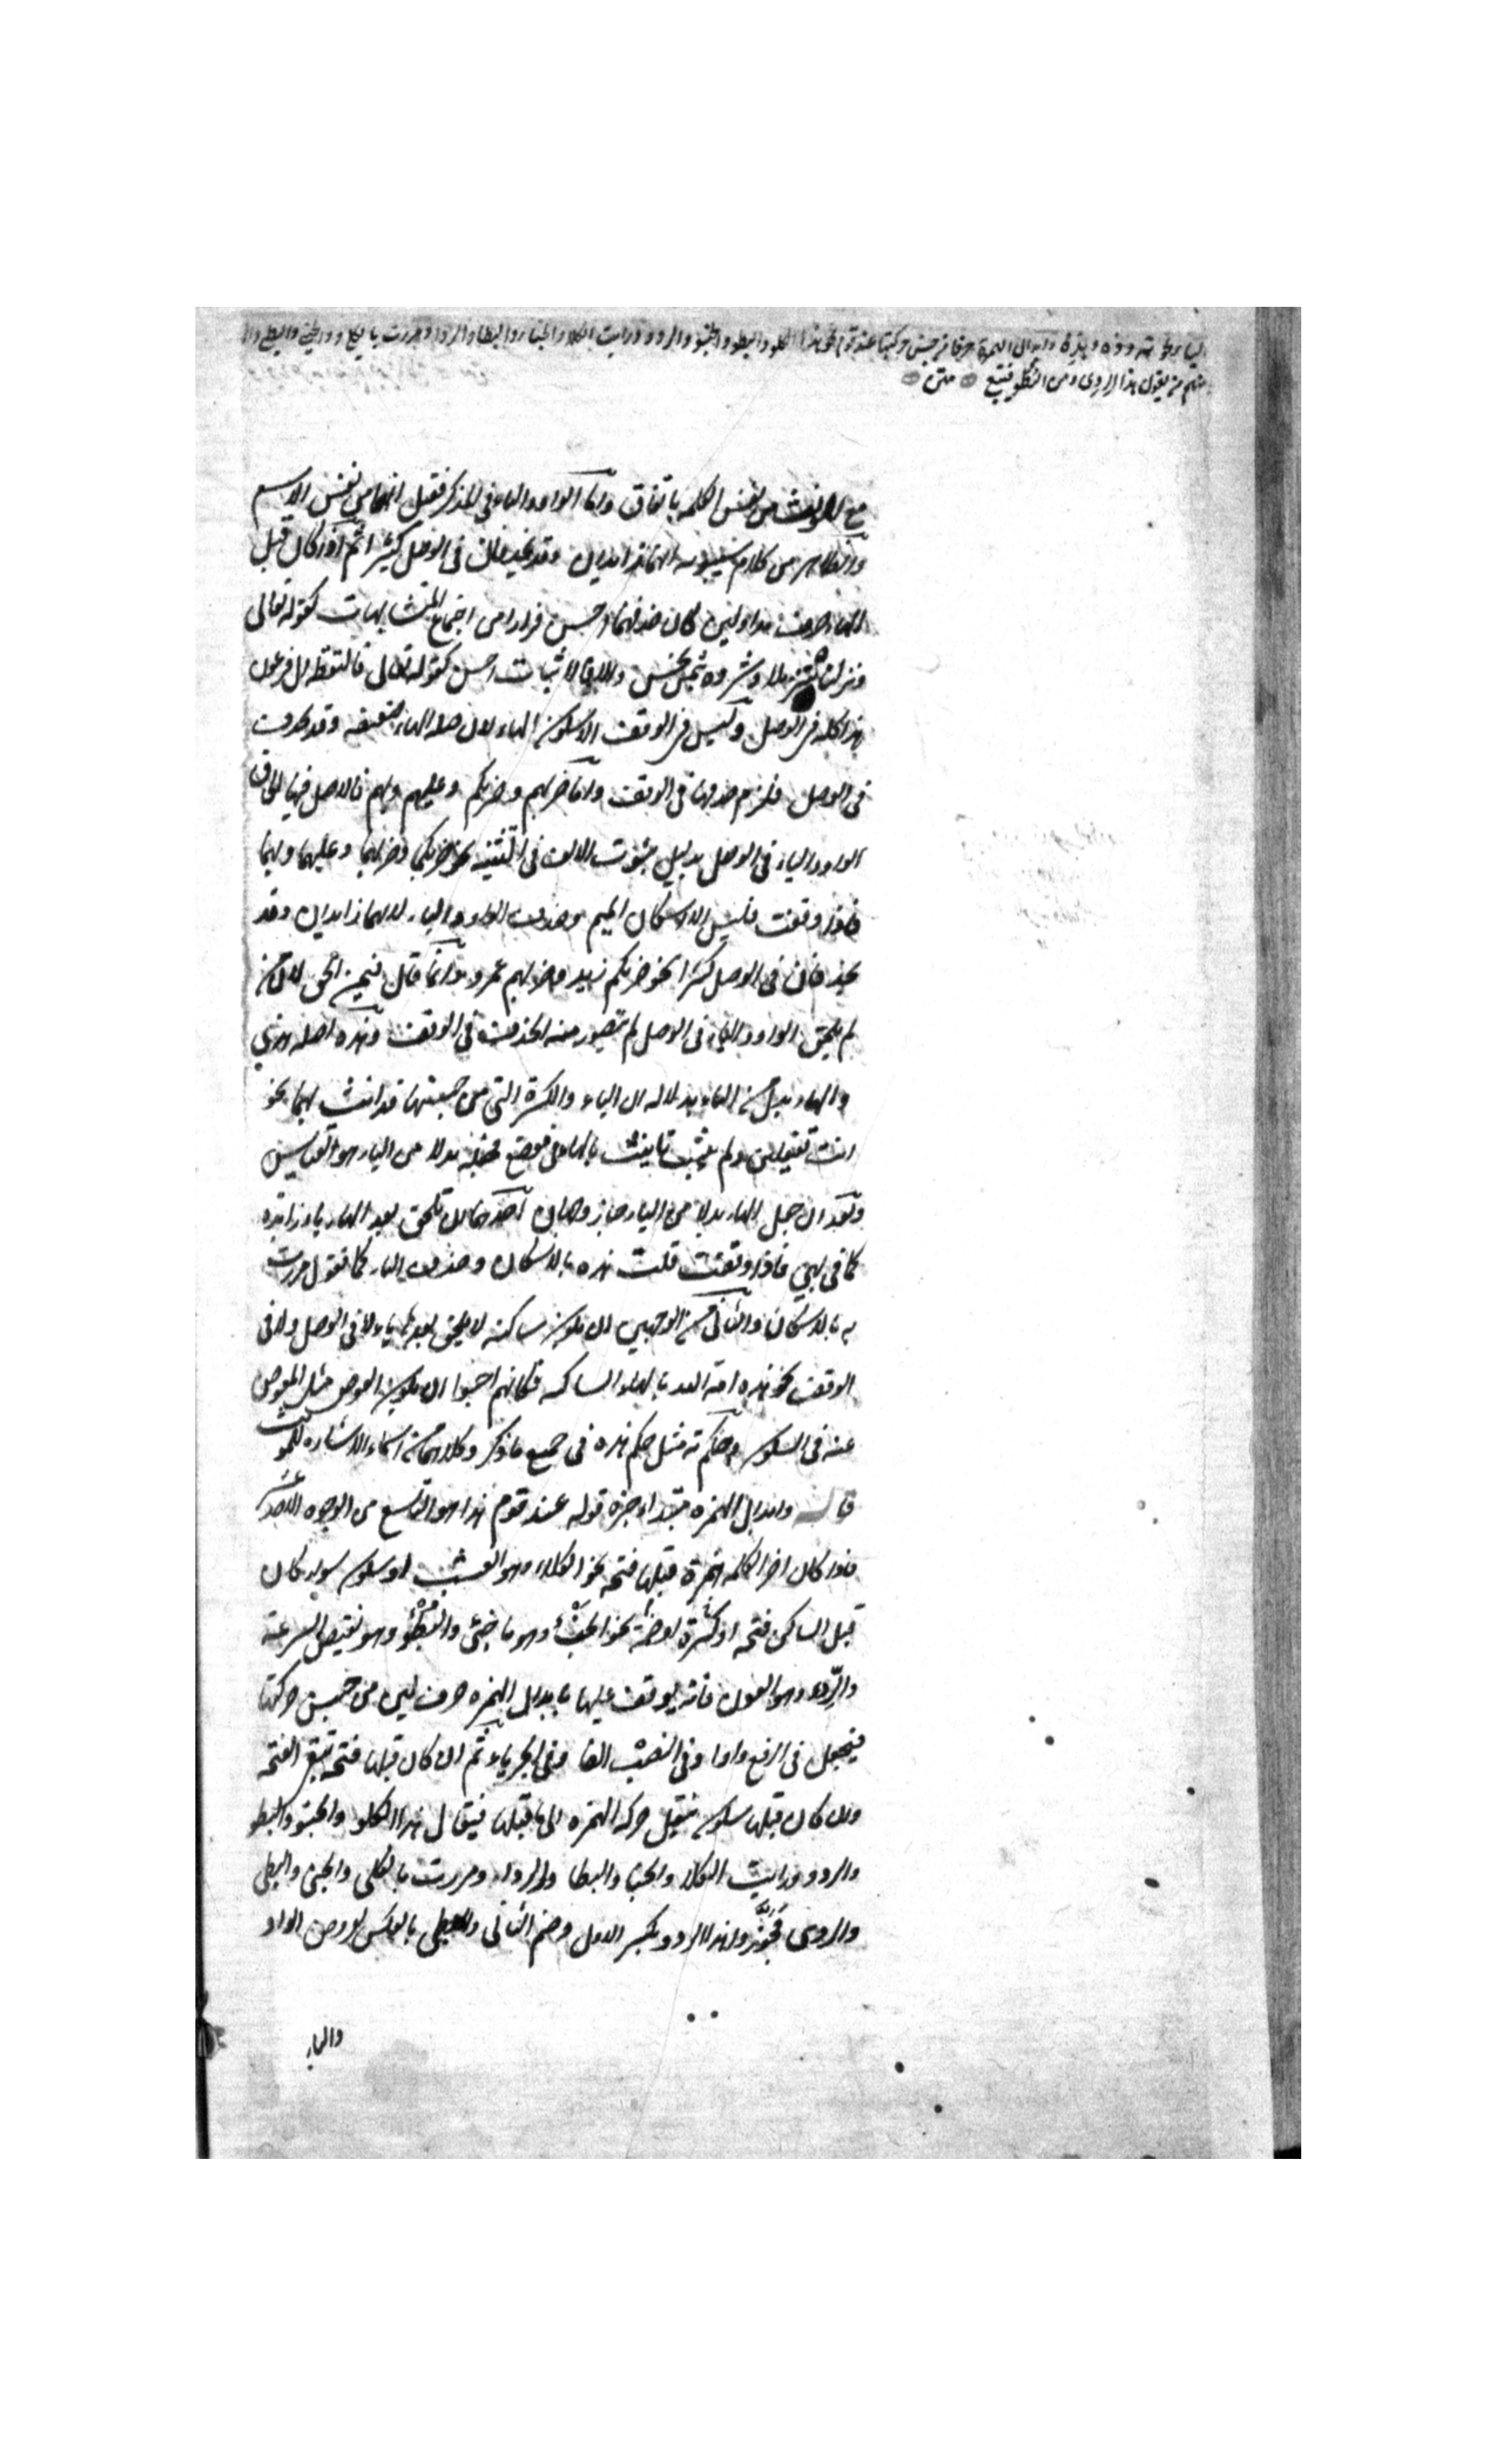 الياء في نحو ته وذه وهذه وابدال الهمزة حرفا من جنس حركتها عند قوم نحو هذا الكلو والبطو والخبو والردو ورايت الكلا والخبا والبطا والردا ومررت بالكلي والخبي والبطي وا
منهم من يقول هذا الردي ومن البطو فيتبع متن
مع المونث من نفس الكلمه باتفاق واما الواو والياء في المذكر فقيل انهما من نفس الاسم
والظاهر من كلام سيبويه انهما زايدان وقد يحذفان في الوصل كثيرا ثم اذا كان قبل
الهاء حرف مد او لين كان حذفهما احسن فرارا من اجتماع المتشابهات كقوله تعالى
ونزلناه تنزيلا وشروه بثمن بخس والا فالاثبات احسن كقوله تعالى فالتقطه ال فرعون
هذا كله في الوصل وليس في الوقف الا سكون الهاء لان صله الهاء ضعيفه وقد حذفت
في الوصل فلزم حذفها في الوقف واما ضربهم وضربكم وعليهم وبهم فالاصل فيها الحاق
الواو والياء في الوصل بدليل ثبوت الالف في التثنيه نحو ضربكما وضربهما وعليهما وبهما
فاذا وقفت فليس الا اسكان الميم وحذف الواو والياء لانهما زايدان وقد
يحذفان في الوصل كثيرا نحو ضربكم زيد وضربهم عمرو وانما قال فيمن الحق لان من
لم يلحق الواو والياء في الوصل لم يتصور منه الحذف في الوقف وهذه اصله هذي
والهاء بدل من الياء بدلاله ان الياء والكسرة التي من جنسها قد انث بهما نحو
انت تفعلين ولم يثبت تانيث بالهاء في موضع فجعله بدلا من الياء هو القياس
وبعد ان جعل الهاء بدلا من الياء جاز وجهان احدهما ان تلحق بعد الهاء ياء زايده
كما في بهي فاذا وقفت قلت هذه بالاسكان وحذف الياء كما تقول مررت
به بالاسكان والثاني من الوجهين ان يكون ساكنه لا يلحق بعدها ياء لا في الوصل ولا في
الوقف نحو هذه امة الله بالهاء الساكنه فكانهم احبوا ان يكون العوض مثل المعوض
عنه في السكون وحكم ته مثل حكم هذه في جميع ما ذكر وكلاهما من اسماء الاشاره للمونث
قال وابدال الهمزه مبتداء خبره قوله عند قوم هذا هو التاسع من الوجوه الاحد عشر
فاذا كان اخر الكلمه همزة قبلها فتحه نحو الكلاء وهو العشب او سكون سواء كان
قبل الساكن فتحه او كسرة او ضمة نحو الخبْء وهو ما خبئ والبُطْؤ وهو نقيض السرعة
والرِّدء وهو العون فانه يوقف عليها بابدال الهمزه حرف لين من جنس حركتها
فيجعل في الرفع واوا وفي النصب الفا وفي الجر ياء ثم ان كان قبلها فتحه تبقى الفتحه
وان كان قبلها سكون ينقل حركة الهمزه الى ما قبلها فيقال هذا الكلو والخبو والبطو
والردو ورايت الكلا والخبا والبطا والردا ومررت بالكلي والخبي والبطي
والردي فجوّزوا هذا الردو بكسر الاول وضم الثاني والبطي بالعكس لعروض الواو
والياء